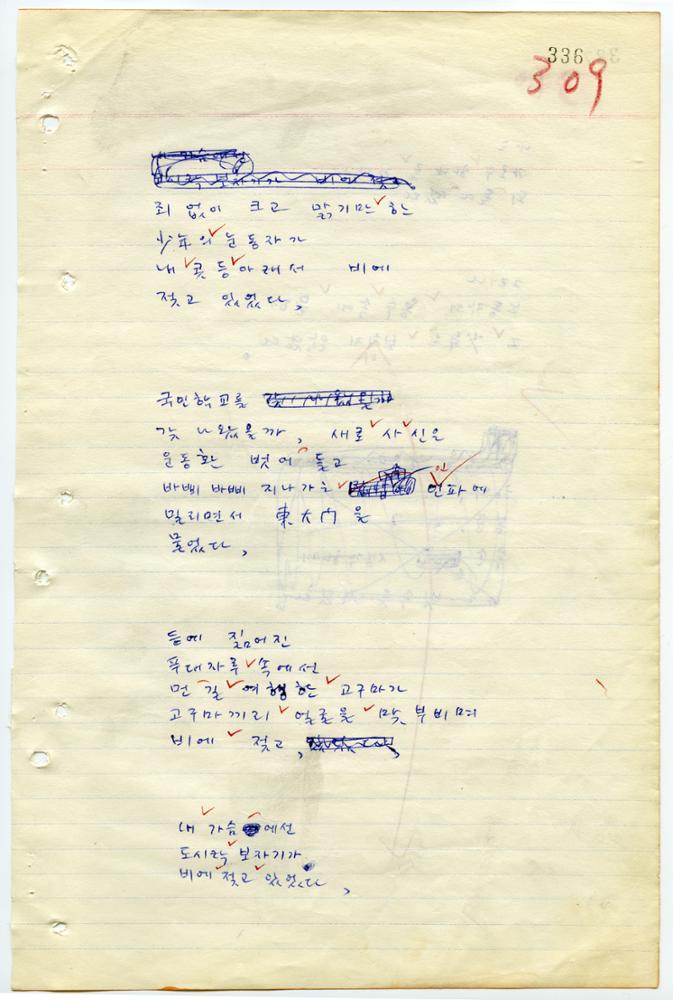 336
309
죄 없이 크고 맑기만한
少年의 눈동자가
내 콧등 아래서 비에
젖고 있었다,
국민학교를
갓 나왔을까, 새로 사 신은
운동환 벗어 들고
바삐 바삐 지나가는 인파에
밀리면서 東大门을
물었다,
등에 짊어진
푸대자루 속에선
먼 길 여행한 고구마가
고구마끼리 얼굴을 맞부비며
비에 젖고,
내 가슴에선
도시락 보자기가
비에 젖고 있었다,